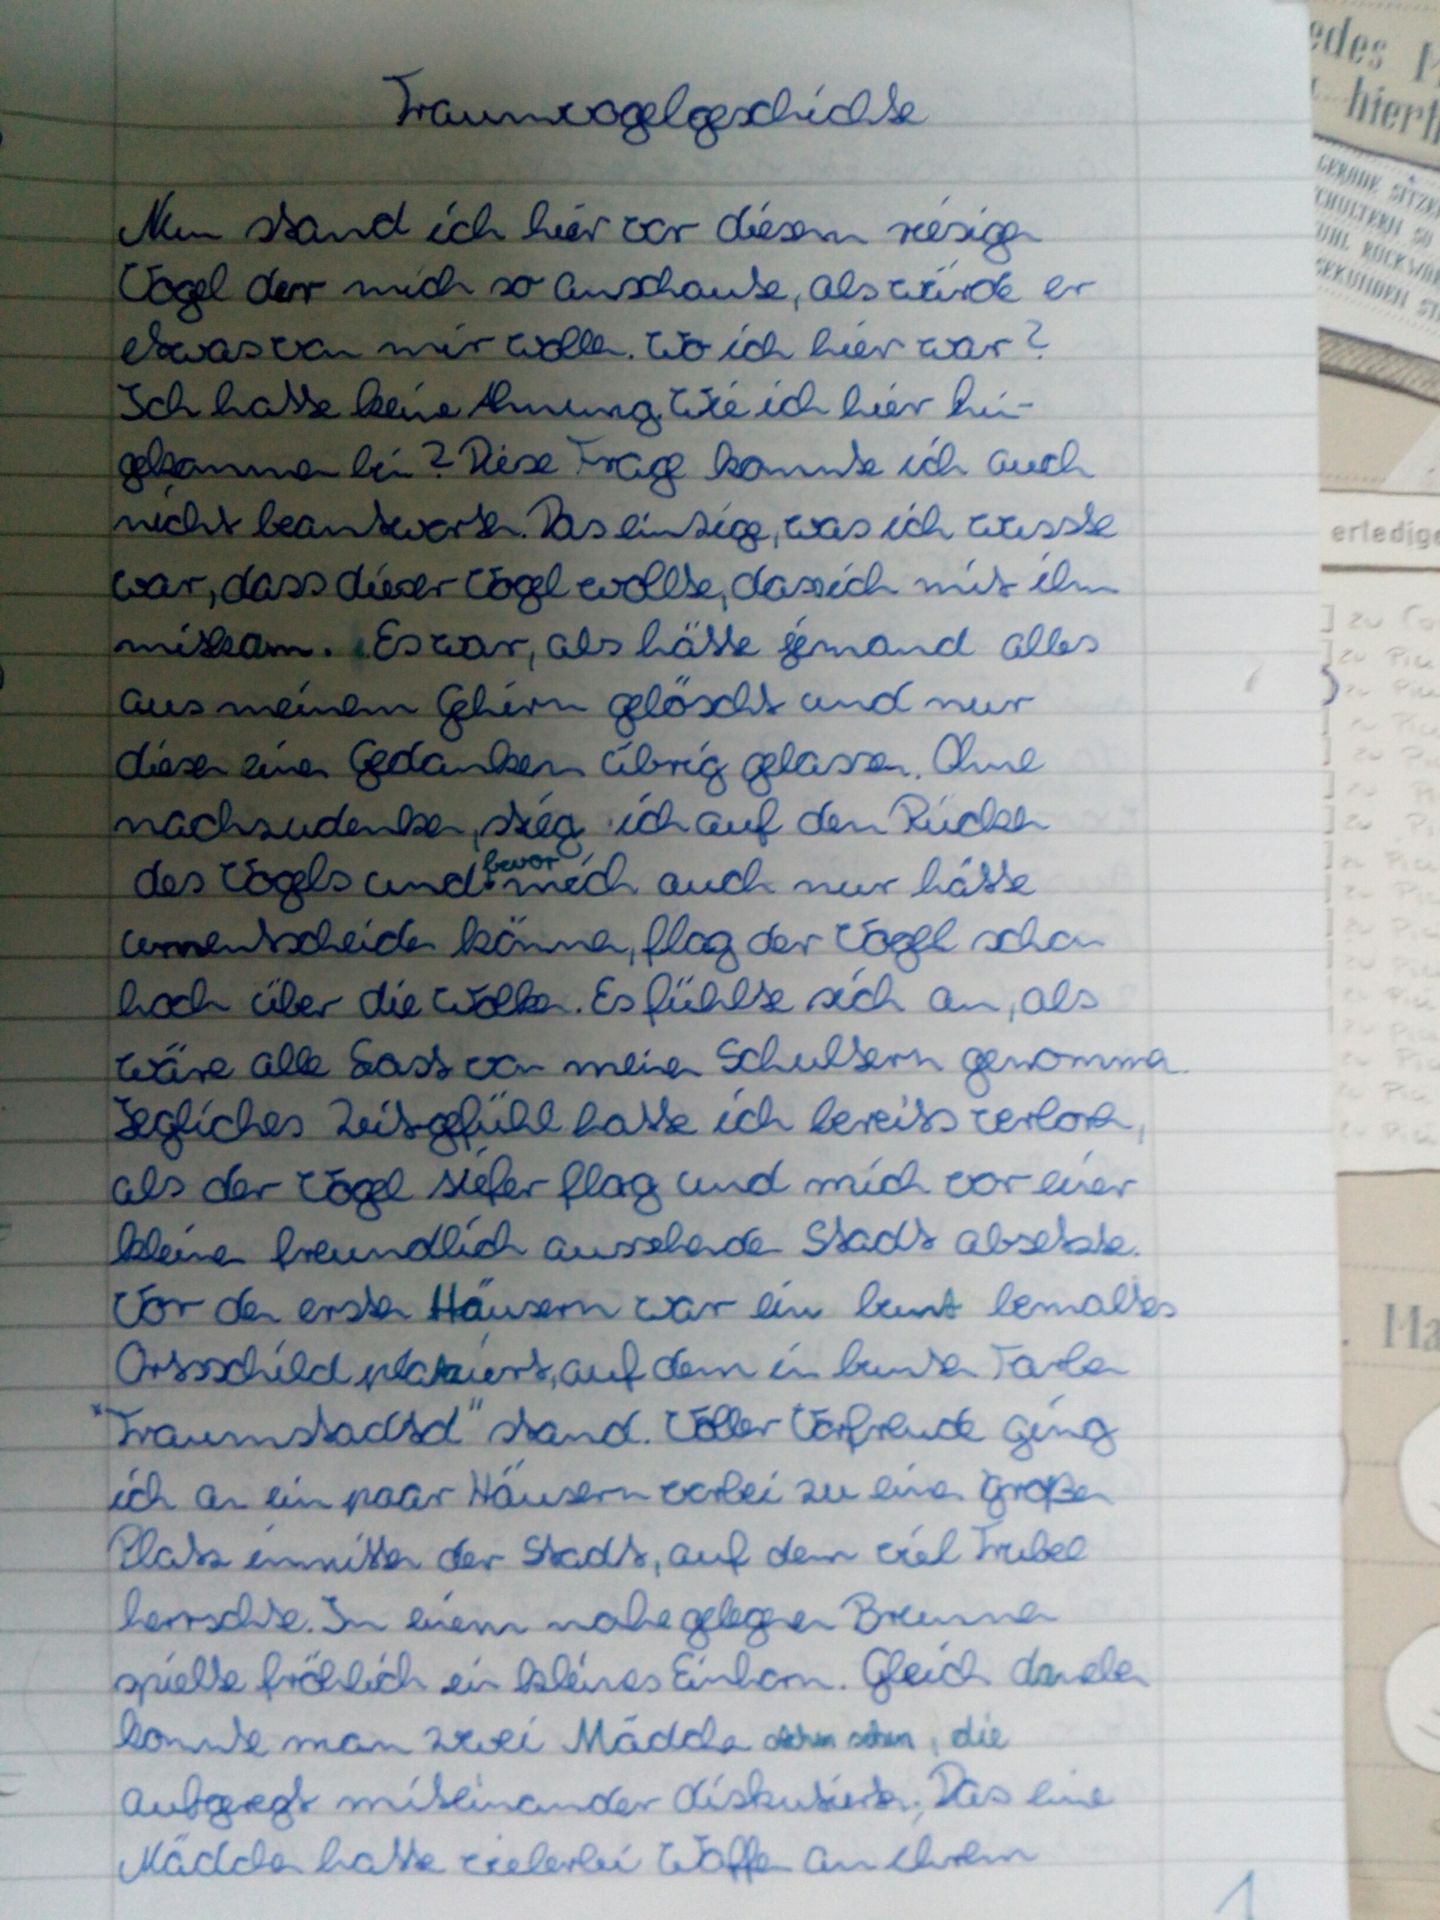 Traumvogelgeschichte
Nun stand ich hier vor diesem riesigen
Vogel der mich so anschaute, als würde er
etwas von mir wollen. Wo ich hier war?
Ich hatte keine Ahnung. Wie ich hier hin-
gekommen bin? Diese Frage konnte ich auch
nicht beantworten. Das einzige, was ich wusste
war, dass dieser Vogel wollte, dass ich mit ihm
mitkam. Es war, als hätte jemand alles
aus meinem Gehirn gelöscht und nur
diesen einen Gedanken übrig gelassen. Ohne
nachzudenken, stieg ich auf den Rücken
bevor
des Vogels und mich auch nur hätte
umentscheiden können, flog der Vogel schon
hoch über die Wolken. Es fühlte sich an, als
wäre alle Last von meinen Schultern genommen.
Jegliches Zeitgefühl hatte ich bereits verloren,
als der Vogel tiefer flog und mich vor einer
kleinen freundlich aussehenden Stadt absetzte.
Vor den ersten Häusern war ein bunt bemaltes
Ortsschild platziert, auf dem in bunten Farben
"Traumstadtd" stand. Voller Vorfreude ging
ich an ein paar Häusern vorbei zu einen großen
Platz inmitten der Stadt, auf dem viel Trubel
herrschte. In einem nahe gelegenen Brunnen
spielte fröhlich ein kleines Einhorn. Gleich daneben
konnte man zwei Mädchen sehen, die
aufgeregt miteinander diskutierten. Das eine
Mädchen hatte vielerlei Waffen an ihrem
1
edes
hierh
GERADE SITZEN
SCHULTERN SO
erledige
zu
zu Pic
zu Pic
zu Pic
zu Pic
zu Pic
Ma